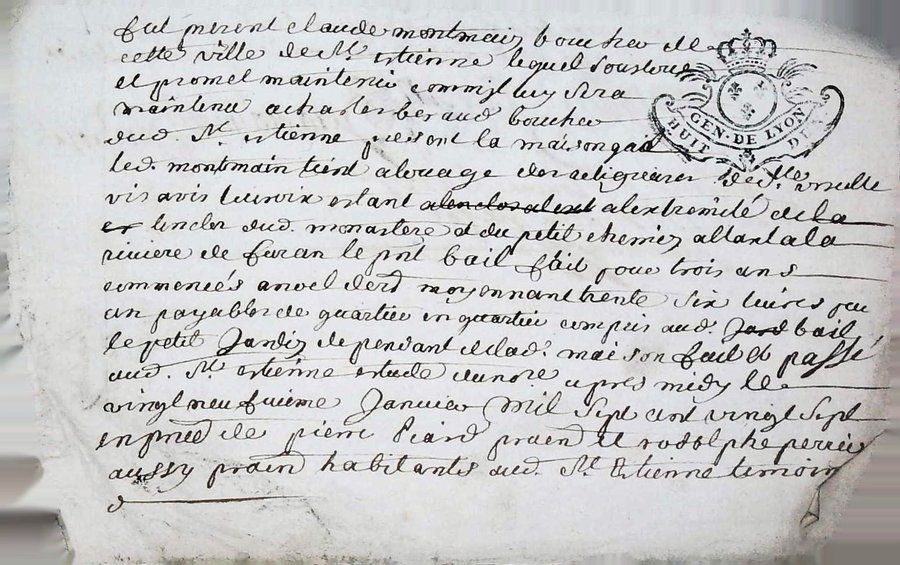 fut present claude montmain boucher de
cette ville de St. estienne lequel soustoue
et promet maintenir comme il luy sera
maintenu a charles beraud boucher
dud. St. estienne present la maison que
led. montmain tient a louage des religieuses de Ste. ursulle
vis avis lacroix estant a lextremité de la
lenclos dud. monastere et du petit chemin allant a la
riviere de furan le pnt bail fait pour trois ans
commencés a noel der. moyennant trente six livres par
an payables de quartier en quartier compris aud. bail
le petit Jardin dependant de lad. maison fait et passé
aud. St. estienne estude du nore apres midy le
vingt neufvieme Janvier mil sept cent vingt sept
en pnce de pierre praend et rodolphe perrier
aussy praend habitants aud. St. Estienne temoins
GEN. DE LYON
HUIT DEN